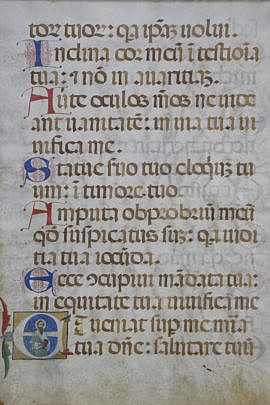 tor tuor: qa ip̄aȝ uolui.
Inclina cor meū ī testiōīa
tua: ⁊ nō in auaritiaȝ.
Aute oculos m̄os ne uide
ant uanitatē: in uia tua ui
uifica me.
Statue suo tuo eloq̄uȝ tu
um: ī timore tuo.
Amputa obprobriū meū
qd̄ suspicatus suȝ: qa iudi
tia tua iocūda.
Ecce ɔcupiui mādata tua:
in equitate tua uiuifica me
Et ueniat sup me mīa
tua dn̄e: salutare tuū